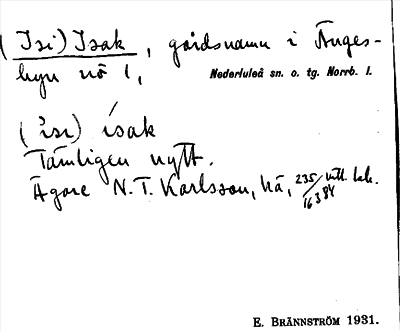 (Isi) Isak, gårdsnamn i Ånges-
byn nö 1,
Nederluleå sn. o. tg. Norrb. l.
('isi) ísak
Tämligen nytt.
Ägare N. T. Karlsson, Nå, 235/16384
E. BRÄNNSTRÖM 1931.